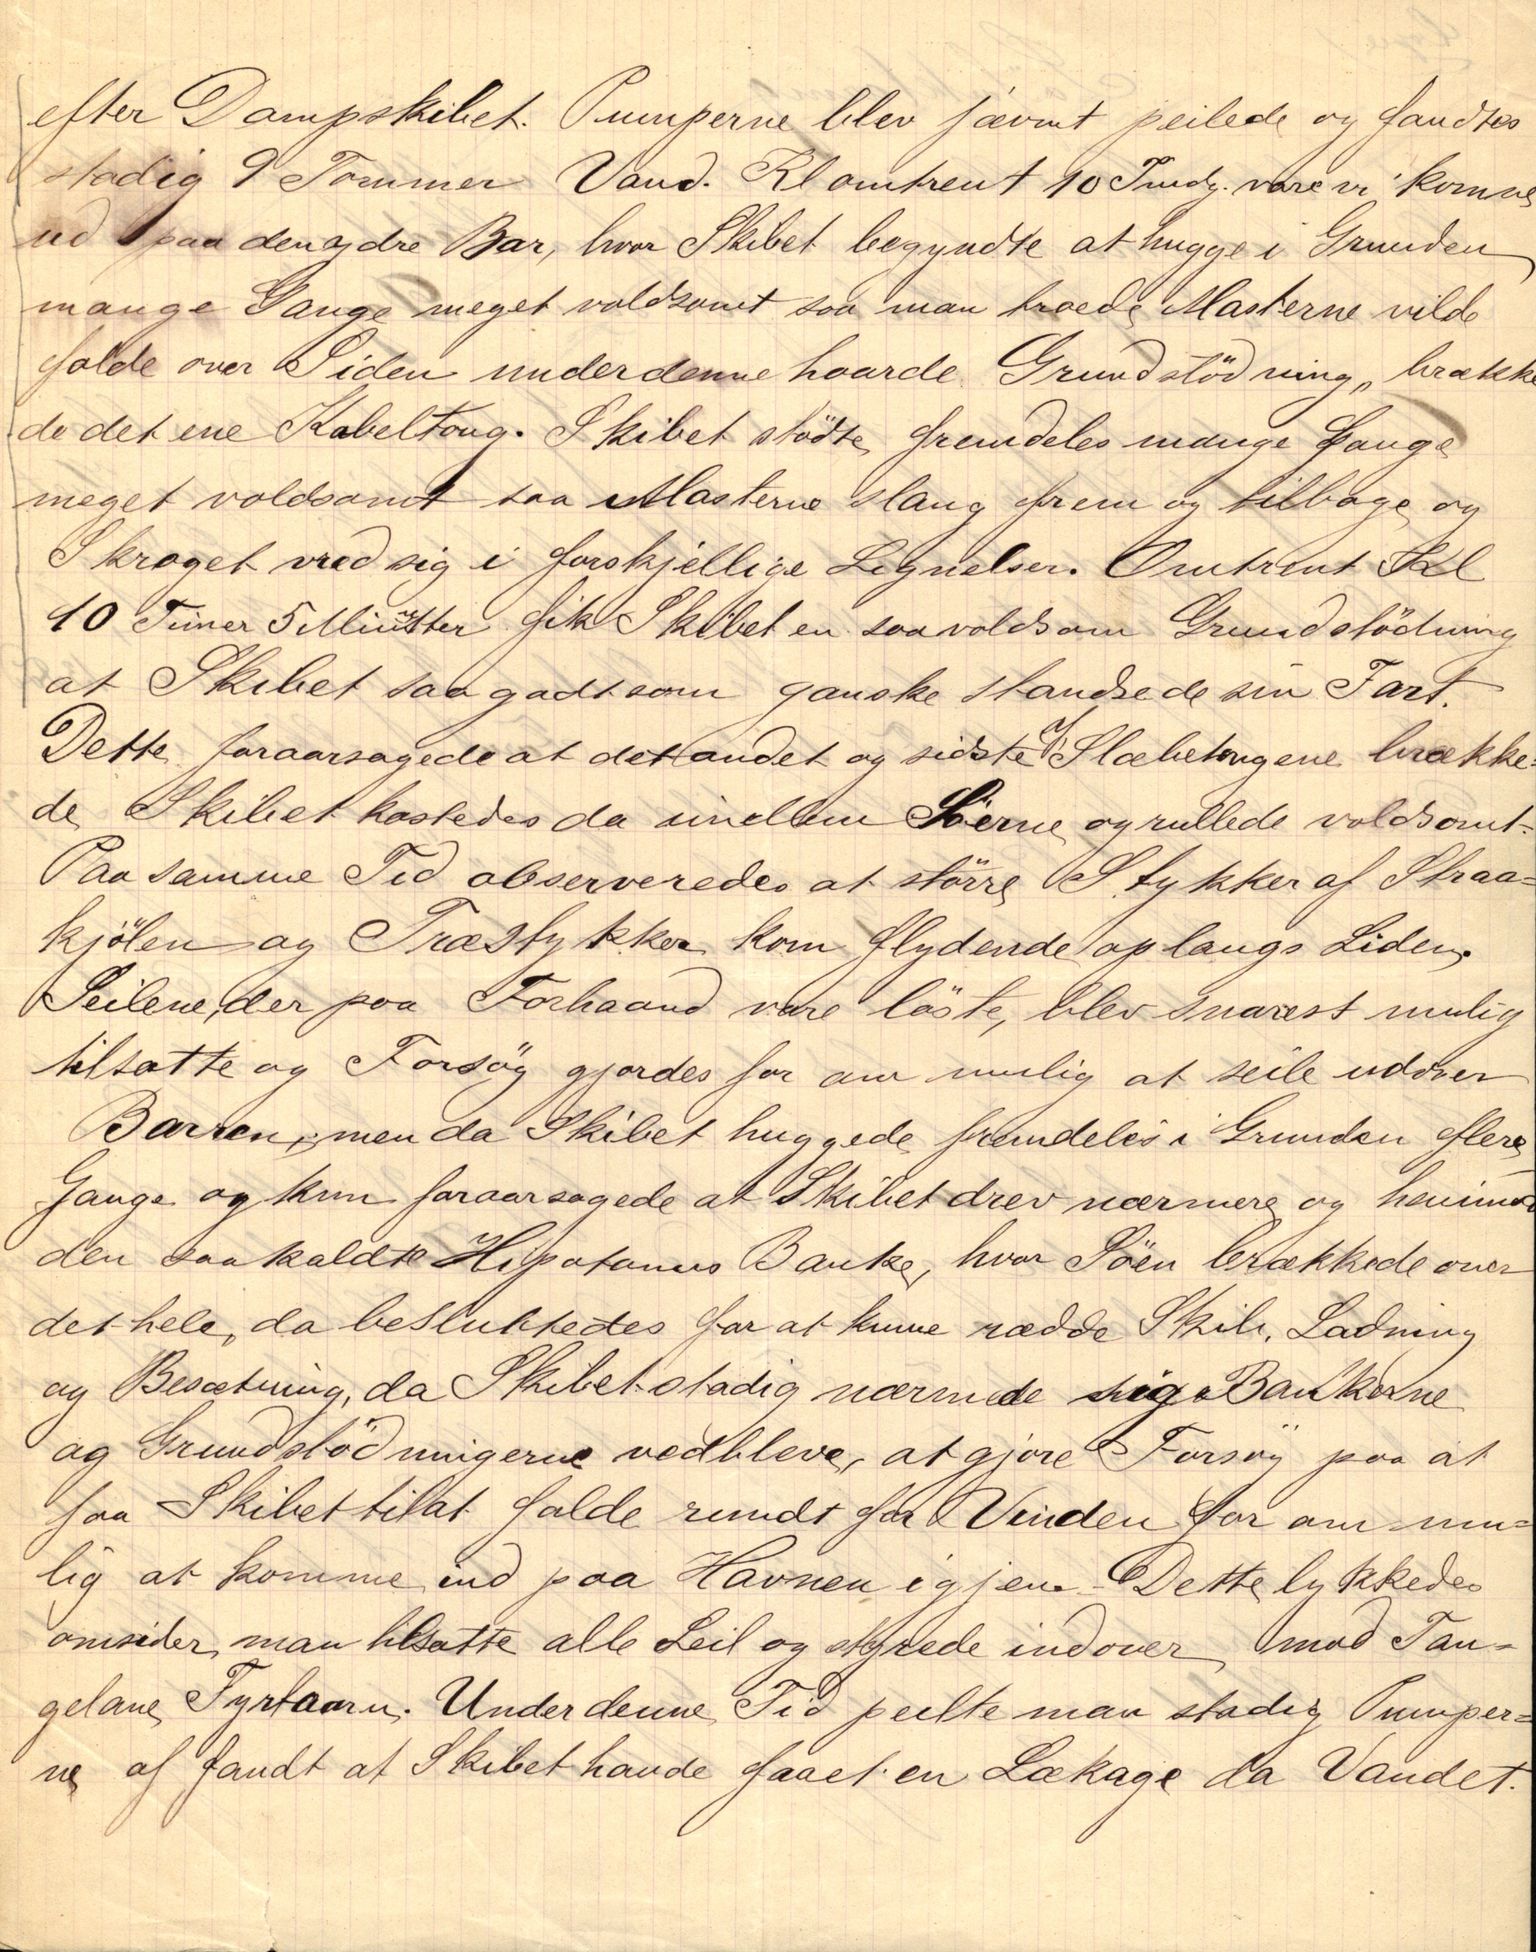 efter Dampskibet. Pumperne blev jævnt peilede og fandtes
stadig 9 Tommer Vand. Kl omtrent 10 Fmdg. vare vi komne
ud paa den ydre Bar, hvor Skibet begyndte at hugge i Grunden
mange Gange meget voldsomt saa man troede Masterne vilde
falde over Siden under denne haarde Grundstödning, brække
de det ene Kabeltoug. Skibet stödte fremdeles mange Gange
meget voldsomt saa Masterne slang frem og tilbage og
Skroget vred sig i forskjellige Lignelser. Omtrent Kl
10 Timer 5 Minutter fik Skibet en saa voldsom Grundstödning
at Skibet saa godt som ganske standsede sin Fart.
Dette foraarsagede at det andet og sidste af Slæbetougene brække=
de Skibet kastedes da imellem Söerne og rullede voldsomt=
Paa samme Tid observeredes at större Stykker af Straa=
kjölen og Træstykker kom flydende op langs Siden.
Seilene, der paa Forhaand vare löste, blev snarest mulig
tilsatte og Forsög gjordes for om mulig at seile udover
Barren, men da Skibet huggede fremdeles i Grunden flere
Gange og kun foraarsagede at Skibet drev nærmere og henimod
den saakaldte Hipotamus Banke, hvor Söen brækkede over
det hele, da besluttedes for at kunne rædde Skib, Ladning
og Besætning, da Skibet stadig nærmede sig Bankerne
og Grundstödningerne vedbleve, at gjore Forsög paa at
faa Skibet til at falde rundt for Vinden for om mu=
lig at komme ind paa Havnen igjen. Dette lykkedes
omsider, man tilsatte alle Seil og styrede indover mod Tan=
gelane Fyrtaarn. Under denne Tid peilte man stadig Pumper=
ne af fandt at Skibet havde faaet en Lækage da Vandet.